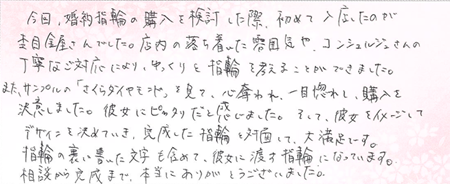 今回、婚約指輪の購入を検討した際、初めて入店したのが
杢目金屋さんでした。店内の落ち着いた雰囲気や、コンシェルジュさんの
丁寧なご対応により、ゆっくりと指輪を考えることができました。
また、サンプルの「さくらダイヤモンド」を見て、心奪われ、一目惚れし、購入を
決意しました。彼女にピッタリだと感じました。そして、彼女をイメージして
デザインを決めていき、完成した指輪と対面して、大満足です。
指輪の裏に書いた文字も含めて、彼女に渡す指輪になっています。
相談から完成まで、本当にありがとうございました。